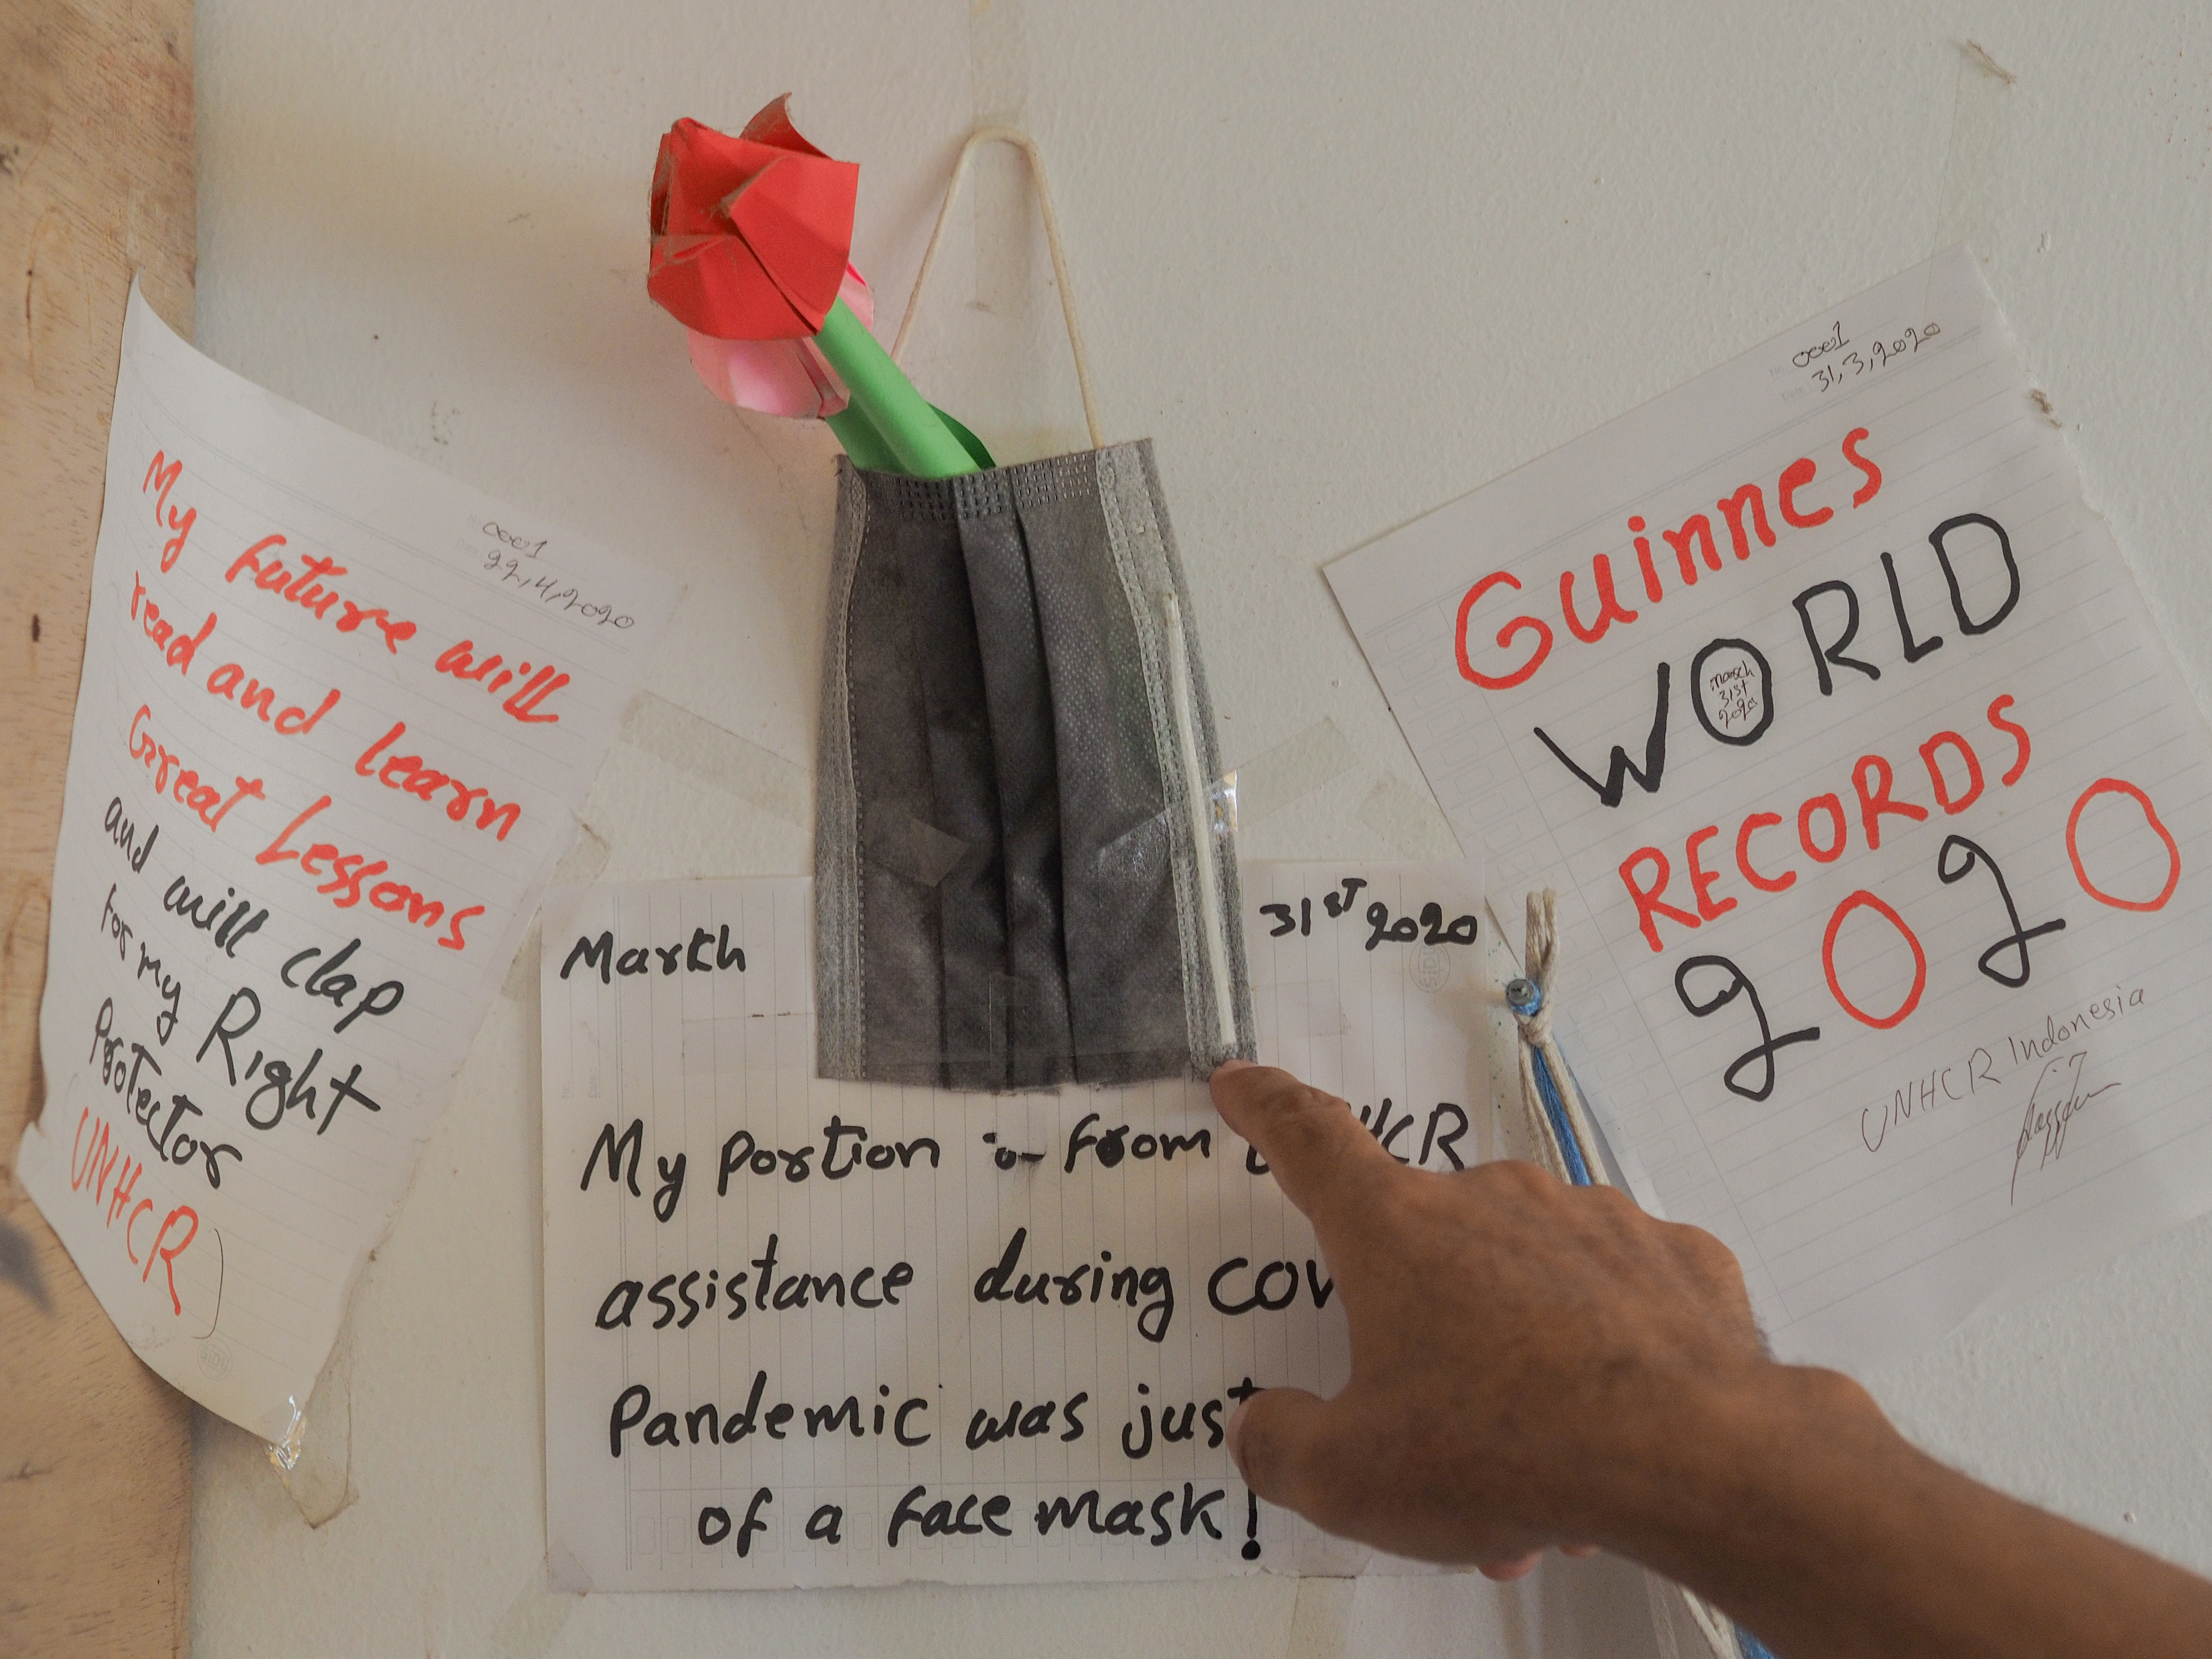 0001
22,4,2020
My future will
read and learn
Great Lessons
and will clap
for my Right
Protector
(UNHCR)
March 31ST 2020
My portion :- from UNHCR
assistance during COV
Pandemic was just
of a face mask!
0001
31,3,2020
Guinnes
WORLD
march
31st
2020
RECORDS
2020
UNHCR Indonesia